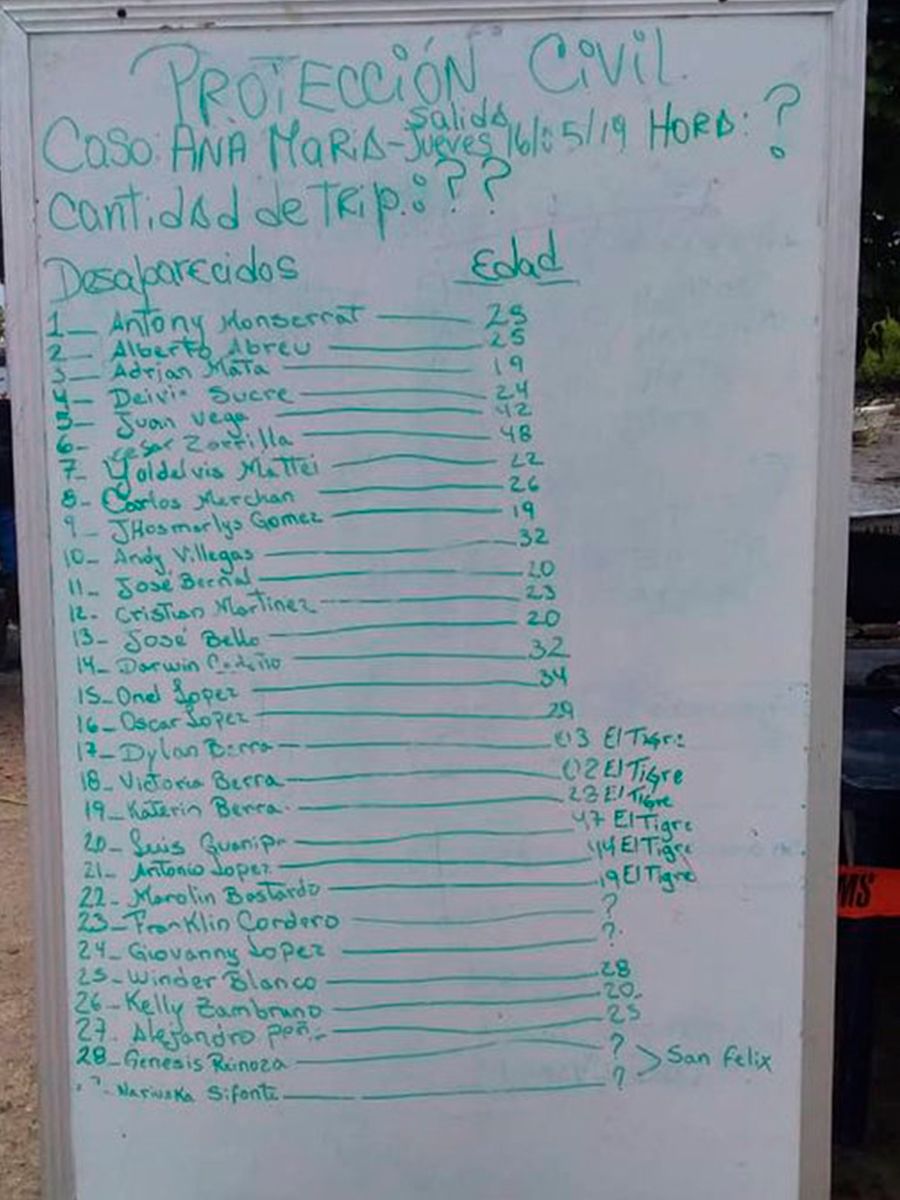 PROTECCIÓN CIVIL
Salida
Caso: ANA MARIA - Jueves 16/05/19 HORA: ?
Cantidad de Trip.: ??
Desaparecidos Edad
1- Antony Monserrat 25
2- Alberto Abreu 25
3- Adrian Mata 19
4- Deivis Sucre 24
5- Juan Vega 42
6- Cesar Zorrilla 48
7- Yoldelvis Mattei 22
8- Carlos Merchan 26
9- JHosmarlys Gomez 19
10- Andy Villegas 32
11- José Bernal 20
12- Cristian Martinez 23
13- José Bello 20
14- Darwin Cedeño 32
15- Onel Lopez 34
16- Oscar Lopez 29
17- Dylan Berra 03 El Tigre
18- Victoria Berra 02 El Tigre
19- Katerin Berra 23 El Tigre
20- Luis Guanipa 47 El Tigre
21- Antonio Lopez 44 El Tigre
22- Marolin Bastardo 19 El Tigre
23- Franklin Cordero ?
24- Giovanny Lopez ?
25- Winder Blanco 28
26- Kelly Zambrano 20
27- Alejandro 25
28- Genesis Reinoza ? San Felix
Nariuska Sifonte ?
MS